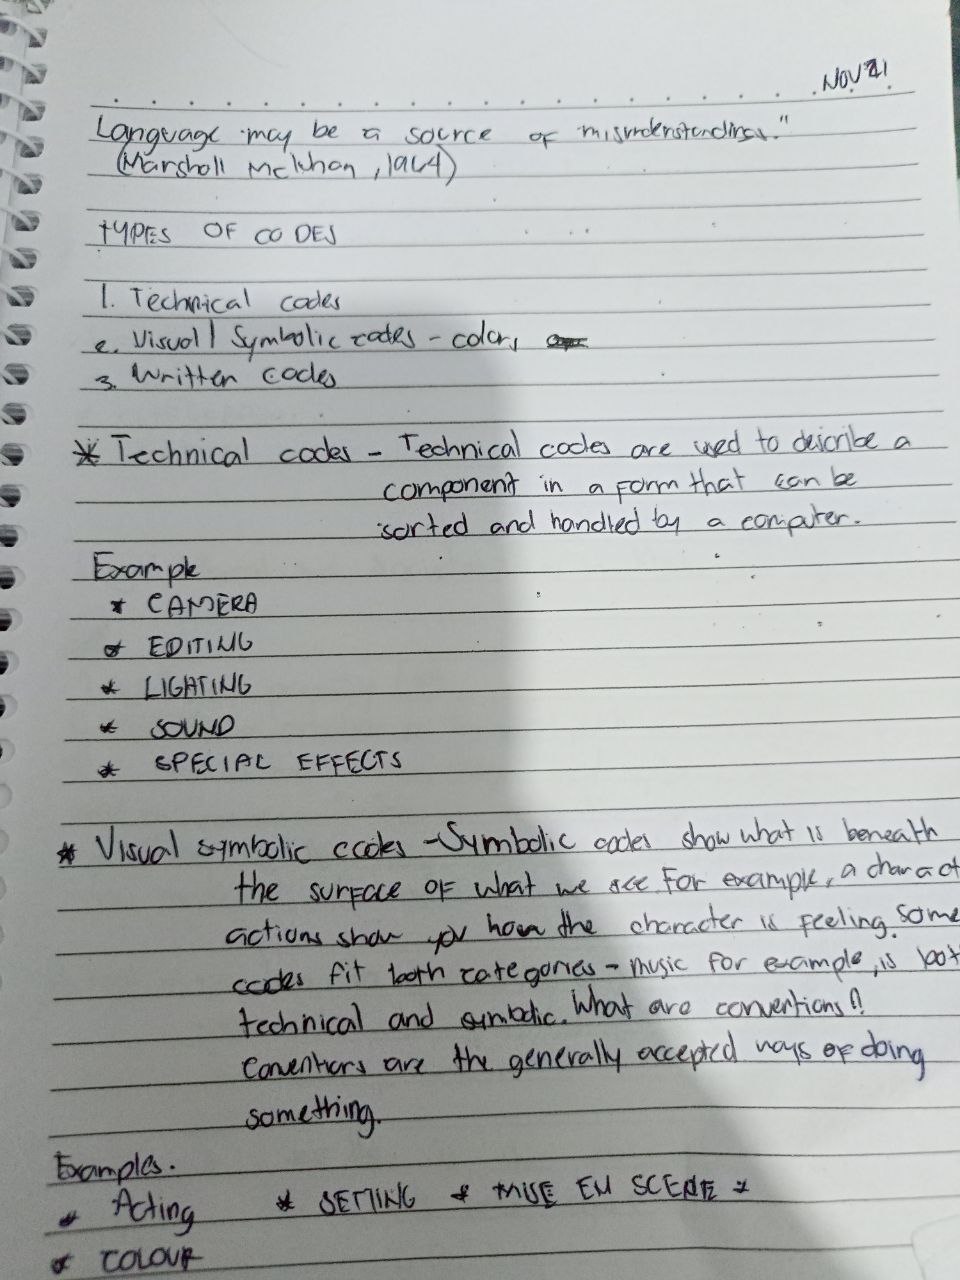 NOV 21
Language may be a source of misunderstandings."
(Marshall McLuhan, 1964)
TYPES OF CODES
1. Technical codes
2. Visual / Symbolic codes - colors
3. Written codes
* Technical codes - Technical codes are used to describe a
component in a form that can be
sorted and handled by a computer.
Example
* CAMERA
* EDITING
* LIGHTING
* SOUND
* SPECIAL EFFECTS
* Visual symbolic codes - Symbolic codes show what is beneath
the surface of what we see For example, a charact
actions show you how the character is feeling. Some
codes fit both categories - music for example, is bot
technical and symbolic. What are conventions?
Conventions are the generally accepted ways of doing
something.
Examples.
* Acting * SETTING * MISE EN SCENE *
* COLOUR